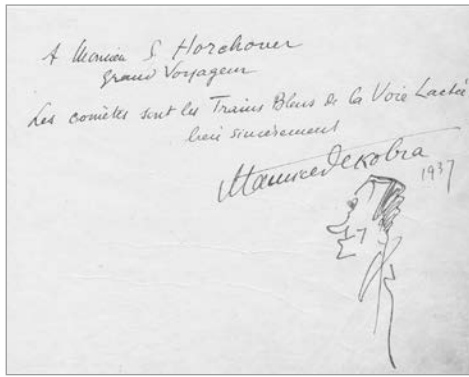 A Monsieur S. Horchover
Grand Voyageur
Les comètes sont les Trains Bleus de la Voie Lactée
bien sincèrement
Maurice Dekobra
1937